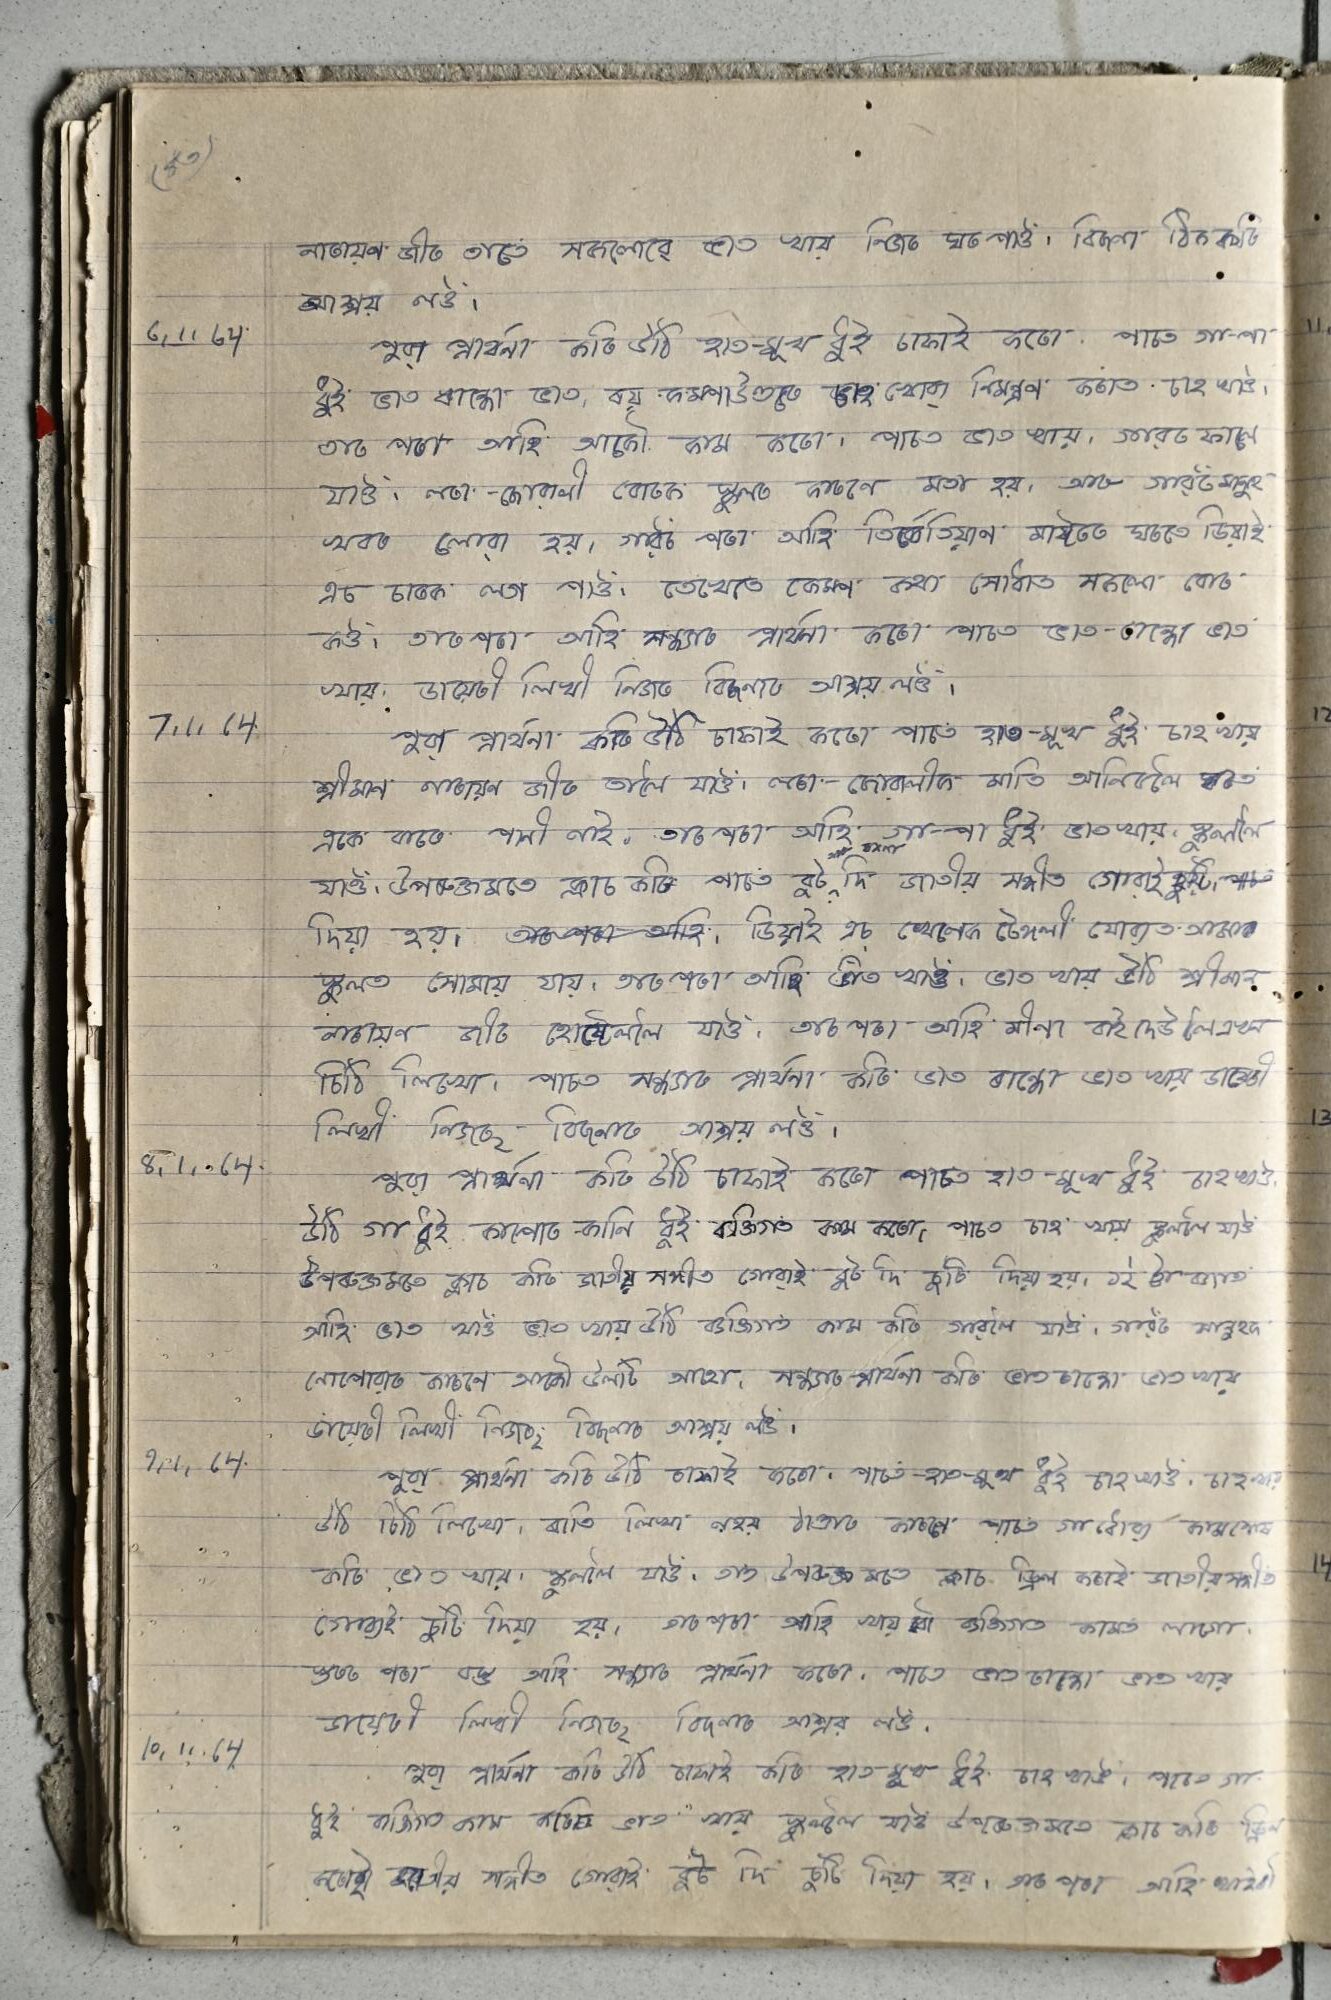 (৫৩)
নাৰায়ণ জীৰ তাতে সকলোৱে ভাত খায় নিজৰ ঘৰ পাওঁ। বিচনা ঠিক কৰি
আশ্ৰয় লওঁ।
6.11.64 পুৱা প্ৰাৰ্থনা কৰি উঠি হাত-মুখ ধুই চাফাই কৰো। পাচত গা-পা
ধুই ভাত ৰান্ধো ভাত, বয় কমপাউণ্ডতে চাহ খোৱা নিমন্ত্ৰণ কৰাত চাহ খাওঁ।
তাৰ পৰা আহি আকৌ কাম কৰো। পাচত ভাত খায়, গাৱৰ ফালে
যাওঁ। লৰা-ছোৱালী বোৰক স্কুলৰ কাৰণে মতা হয়, আৰু গাৱঁৰ মানুহ
খবৰ লোৱা হয়। গাৱঁৰ পৰা আহি তিৰ্বেতিয়ান মাষ্টৰৰ ঘৰতে ডিয়াই
এচ চাৰক লগ পাওঁ। তেখেতে কেম্পৰ কথা সোধাত সকলো বোৰ
কওঁ। তাৰ পৰা আহি সন্ধ্যাৰ প্ৰাৰ্থনা কৰো পাচত ভাত-ৰান্ধো ভাত
খায়। ডায়েৰী লিখী নিজৰ বিচনাত আশ্ৰয় লওঁ।
7.11.64 পুৱা প্ৰাৰ্থনা কৰি উঠি চাফাই কৰো পাচত হাত-মুখ ধুই চাহ খায়
শ্ৰীমান নাৰায়ণ জীৰ তালৈ যাওঁ। লৰা-ছোৱালীক মাতি আনিবলৈ ঘৰত
একে বাৰে পানী নাই। তাৰ পৰা আহি গা-পা ধুই ভাত খায়। স্কুললৈ
যাওঁ। উপৰুক্তমতে ক্লাচ কৰি পাচত বুট দি জাতীয় সঙ্গীত গোৱাই ছুটি
দিয়া হয়। তাৰ পৰা আহি, ডিয়াই এচ খেলেক টেঙ্গলী যোৱাত আমাৰ
স্কুলত সোমায় যায়। তাৰ পৰা আহি ভাত খাওঁ। ভাত খায় উঠি শ্ৰীমান
নাৰায়ণ জীৰ হোষ্টেললৈ যাওঁ। তাৰ পৰা আহি মীনা বাইদেউলৈ এখন
চিঠি লিখো। পাচত সন্ধ্যাৰ প্ৰাৰ্থনা কৰি ভাত ৰান্ধো ভাত খায় ডায়েৰী
লিখী নিজৰ বিচনাত আশ্ৰয় লওঁ।
8.1.64. পুৱা প্ৰাৰ্থনা কৰি উঠি চাফাই কৰো পাচত হাত-মুখ ধুই চাহ খাওঁ।
উঠি গা ধুই কাপোৰ-কানি ধুই ব্যক্তিগত কাম কৰো, পাচত চাহ খায় স্কুললৈ যাওঁ
উপৰুক্তমতে ক্লাচ কৰি জাতীয় সঙ্গীত গোৱাই বুট দি ছুটি দিয়া হয়।
আহি ভাত খাওঁ ভাত খায় উঠি ব্যক্তিগত কাম কৰি গাৱঁলৈ যাওঁ। গাৱঁত মানুহক
নোপোৱাৰ কাৰণে আকৌ উলটি আহো। সন্ধ্যাৰ প্ৰাৰ্থনা কৰি ভাত ৰান্ধো ভাত খায়
ডায়েৰী লিখী নিজৰ বিচনাত আশ্ৰয় লওঁ।
9.11.64. পুৱা প্ৰাৰ্থনা কৰি উঠি চাফাই কৰো। পাচত হাত-মুখ ধুই চাহ খাওঁ। চাহ খায়
উঠি চিঠি লিখো। ৰাতি লিখা নহয় কাৰণে পাচত গা ধোৱা কাম শেষ
কৰি ভাত খায়। স্কুললৈ যাওঁ। তাত উপৰুক্ত মতে ক্লাচ ড্ৰিল কৰাই জাতীয় সঙ্গীত
গোৱাই ছুটি দিয়া হয়। তাৰ পৰা আহি খায় ব্যক্তিগত কামত লাগো।
পৰা আহি সন্ধ্যাৰ প্ৰাৰ্থনা কৰো। পাচত ভাত ৰান্ধো ভাত খায়
ডায়েৰী লিখী নিজৰ বিচনাত আশ্ৰয় লওঁ।
10.11.64 পুৱা প্ৰাৰ্থনা কৰি উঠি চাফাই কৰি হাত-মুখ ধুই চাহ খাওঁ। পাচত গা
ধুই ব্যক্তিগত কাম কৰি ভাত খায় স্কুললৈ যাওঁ উপৰুক্তমতে ক্লাচ কৰি ড্ৰিল
কৰাই জাতীয় সঙ্গীত গোৱাই বুট দি ছুটি দিয়া হয়। তাৰ পৰা আহি